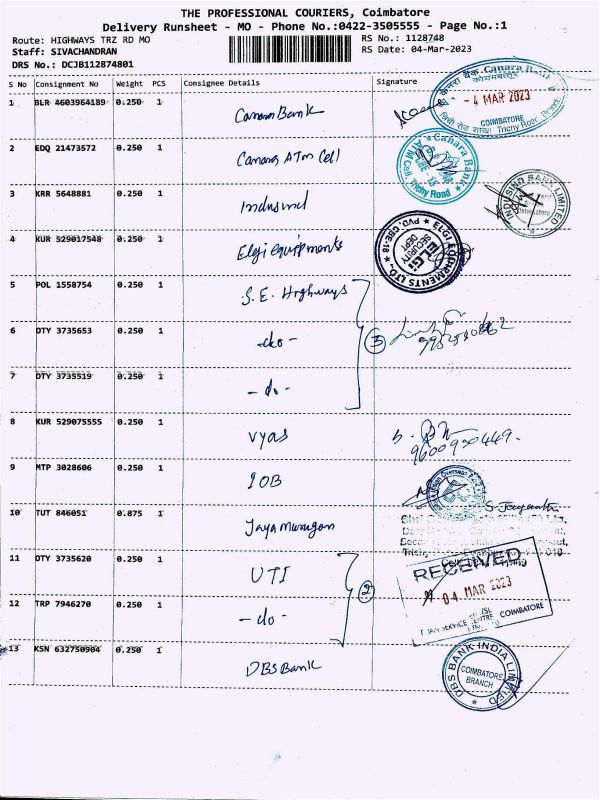 THE PROFESSIONAL COURIERS, Coimbatore
Delivery Runsheet - MO - Phone No.:0422-3505555 - Page No.:1
Route: HIGHWAYS TRZ RD MO
RS No.: 1128748
Staff: SIVACHANDRAN
RS Date: 04-Mar-2023
DRS No.: DCJB112874801
S No Consignment No Weight PCS Consignee Details Signature
1 BLR 4603964189 0.250 1 Canara Bank
Canara Bank
- 4 MAR 2023
COIMBATORE
Trichy Road
2 EDQ 21473572 0.250 1 Canara ATM Cell
Canara Bank
ATM Cell, Trichy Road
3 KRR 5648881 0.250 1 Indusind
INDUSIND BANK LIMITED
4 KUR 529017548 0.250 1 Elgi equipments
ELGI EQUIPMENTS LTD. PVD. CBE-18
ELGi
SECURITY
DEPT
5 POL 1558754 0.250 1 S.E. Highways
6 OTY 3735653 0.250 1 -do- 3
7 OTY 3735519 0.250 1 -do-
8 KUR 529075555 0.250 1 vyas
9600920449.
9 MTP 3028606 0.250 1 IOB
10 TUT 846051 0.875 1 Jayamurugan
11 OTY 3735620 0.250 1 UTI
RECEIVED
04 MAR 2023
COIMBATORE
12 TRP 7946270 0.250 1 -do- 2
13 KSN 632750904 0.250 1 DBS Bank
DBS BANK INDIA LIMITED
COIMBATORE
BRANCH